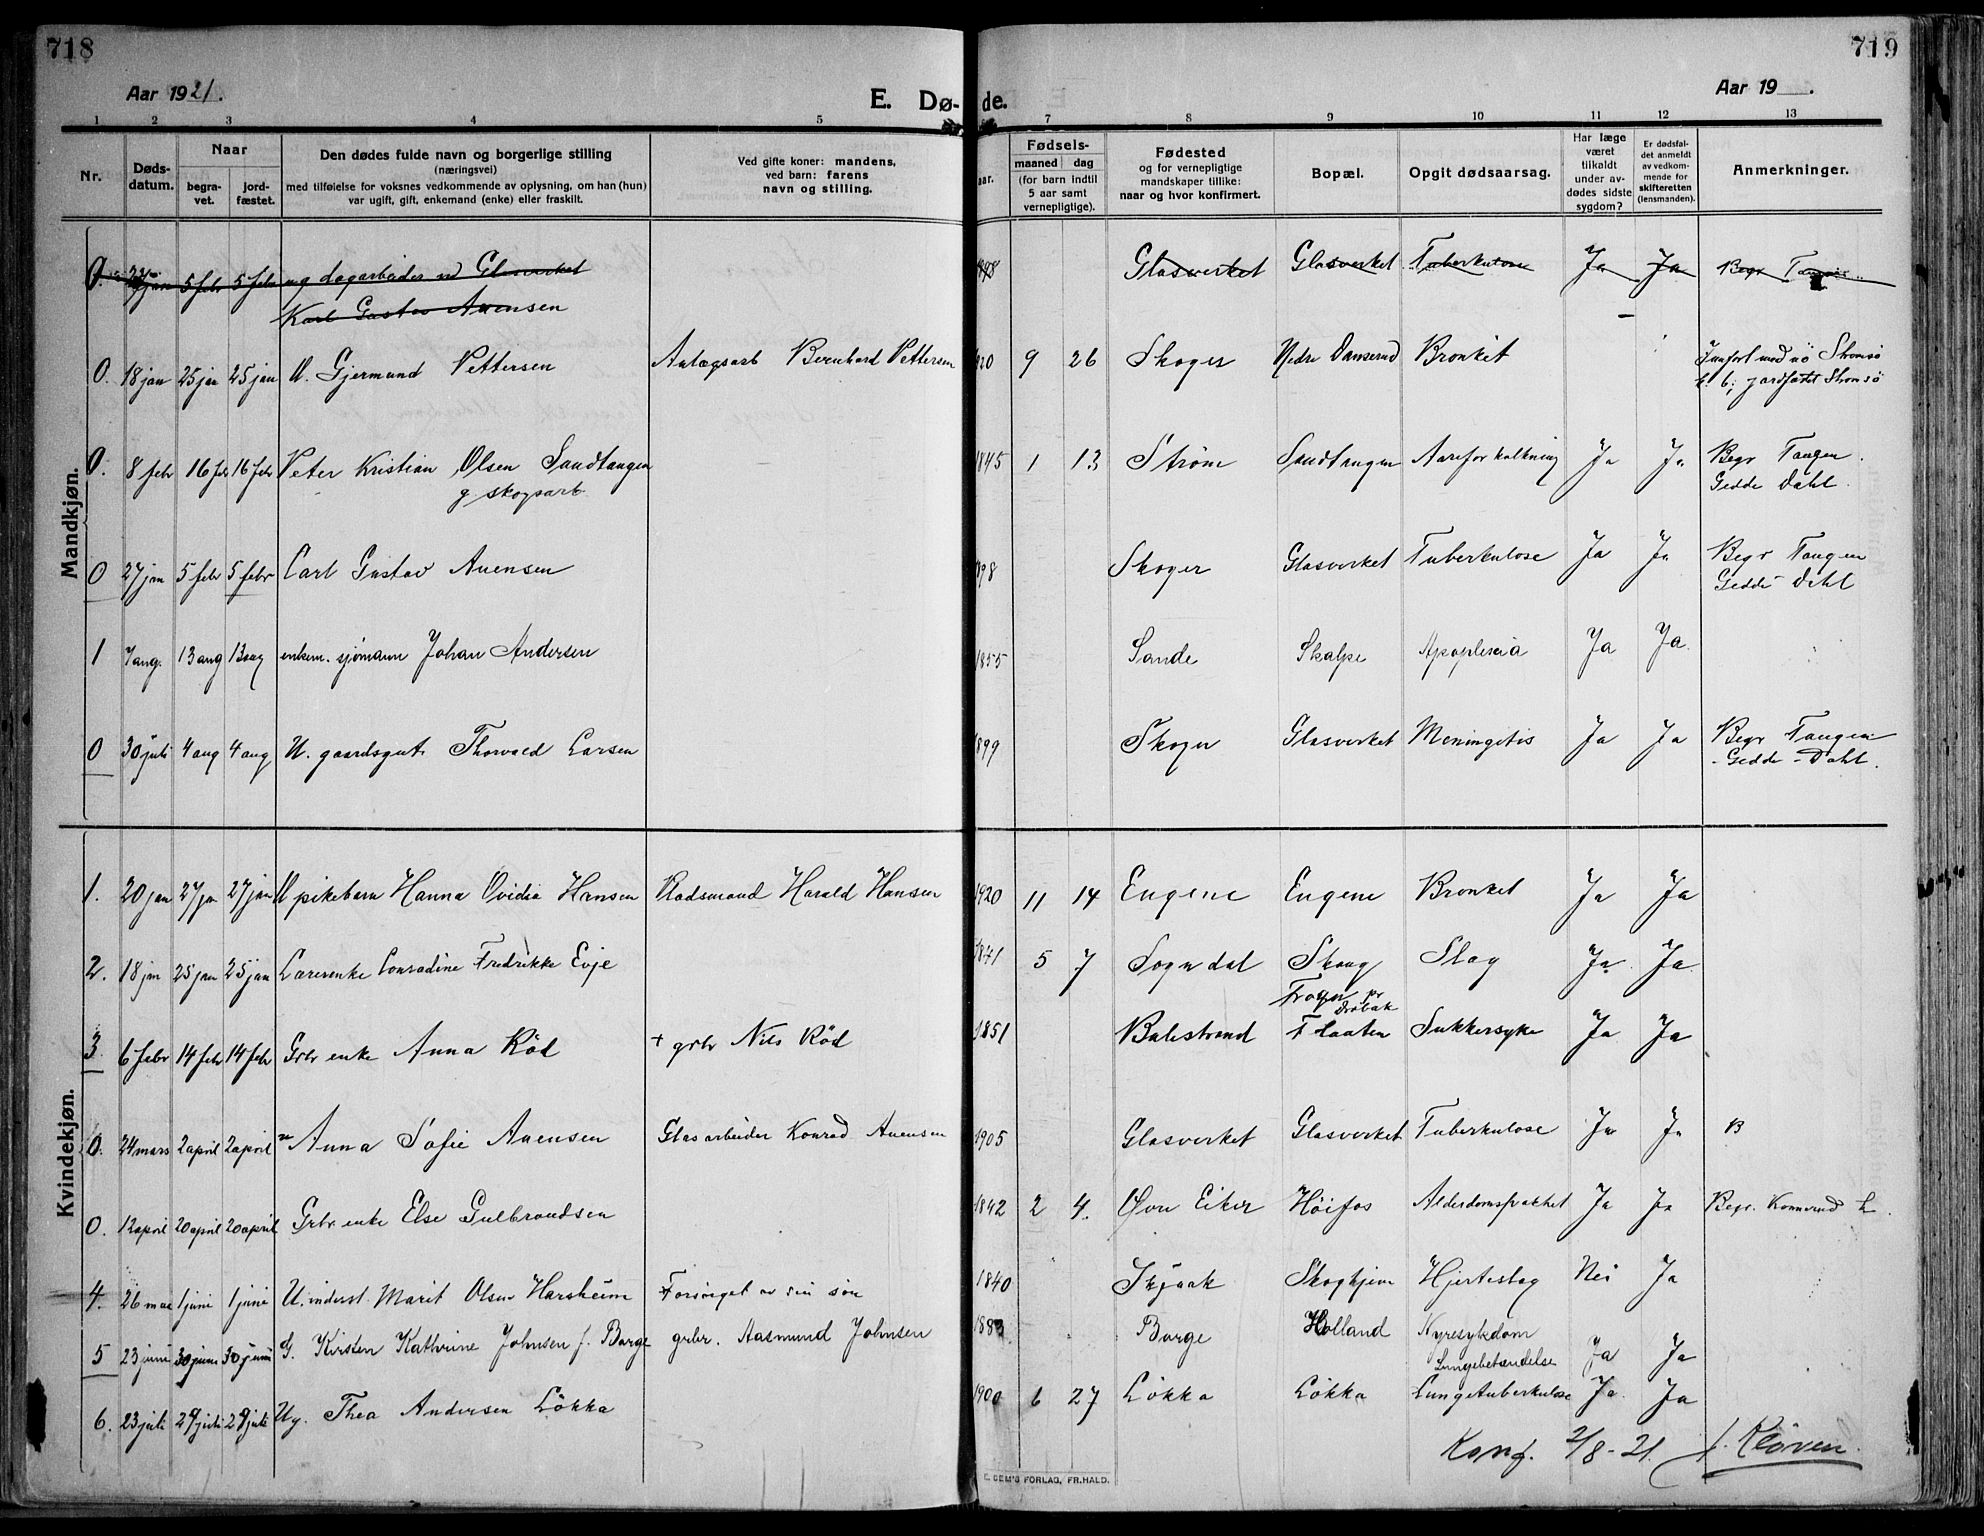 718
719
Aar 1921.
E. Dø-
de.
Aar 19 .
1 2 3 4 5 7 8 9 10 11 12 13
Nr.
Døds-
datum.
Naar
begra-
vet.
jord-
fæstet.
Den dødes fulde navn og borgerlige stilling
(næringsvei)
med tilføielse for voksnes vedkommende av oplysning, om han (hun)
var ugift, gift, enkemand (enke) eller fraskilt.
Ved gifte koner: mandens,
ved barn: farens
navn og stilling.
aar.
Fødsels-
maaned dag
(for barn indtil
5 aar samt
vernepligtige).
Fødested
og for vernepligtige
mandskaper tillike:
naar og hvor konfirmert.
Bopæl.
Opgit dødsaarsag.
Har læge
været
tilkaldt
under av-
dødes sidste
sygdom?
Er dødsfal-
det anmeldt
av vedkom-
mende for
skifteretten
(lensmanden).
Anmerkninger.
Mandkjøn.
0. 27 jan 5 febr 5 febr ug dagarbeider ved Glasverket 1898 Glasverket Glasverket Tuberkulose Ja Ja Begr Tangen
Karl Gustav Auensen
0. 18 jan 25 jan 25 jan U. Gjermund Pettersen Anlægsarb Bernhard Pettersen 1920 9 26 Skoger Nedre Danserud Bronkit
Strømsø
jordfæstet Strømsø
0. 8 febr 16 febr 16 febr Peter Kristian Olsen Sandtangen 1845 1 13 Strøm Sandtangen Aareforkalkning Ja Ja Begr Tangen
g skogsarb Gedde Dahl.
0 27 jan 5 febr 5 febr Carl Gustav Auensen 1898 Skoger Glasverket Tuberkulose Ja Ja Begr Tangen
Gedde-Dahl
1 7 aug. 13 aug 13 aug enkem. sjømann Johan Andersen 1855 Sande Skalpe Apoplexia Ja Ja
0 30 juli 4 aug 4 aug U. gaardsgut Thorvald Larsen 1899 Skoger Glasverket Meningitis Ja Ja Begr Tangen
- Gedde-Dahl.
Kvindekjøn.
1. 20 jan 27 jan 27 jan U pikebarn Hanna Ovidia Hansen Radsmand Harald Hansen 1920 11 14 Eugene Eugene Bronket Ja Ja
2. 18 jan 25 jan 25 jan Lærerenke Conradine Fredrikke Evje 1841 5 7 Sogndal Skaug Slag Ja Ja
Frogn pr
Drøbak
3. 6 febr 14 febr 14 febr Grbr enke Anna Rød + grbr Nils Rød 1851 Balestrand Flaaten Sukkersyke Ja Ja
0. 24 mars 2 april 2 april Anna Sofie Auensen Glasarbeider Konrad Auensen 1905 Glasverket Glasverket Tuberkulose Ja Ja B
0. 12 april 20 april 20 april Grbr enke Else Gulbrandsen 1842 2 4. Øvre Eiker Høifos Alderdomssvakhet Ja Ja Begr. Konnerud
4. 26 mai 1 juni 1 juni U. inderst Marit Olsen Harsheim Forsørget av sin søn 1840 Skjaak Skoghjem Hjerteslag Nei Ja
5 23 juni 30 juni 30 juni G. Kirsten Kathrine Johnsen f. Borge grbr. Aasmund Johnsen 1883 Borge Holland Nyresykdom
Lungebetændelse Ja Ja
6. 23 juli 29 juli 29 juli Ug. Thea Andersen Løkka 1900 6 27 Løkka Løkka Lungetuberkulose Ja Ja
Konf. 2/8-21. J. Kløven.
FORLAG, FR.HALD.